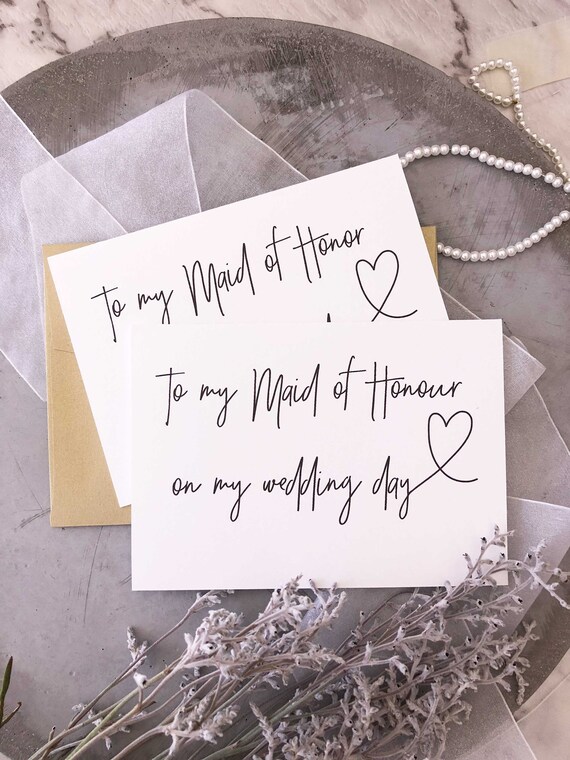 To my Maid of Honor
To my Maid of Honour
on my wedding day